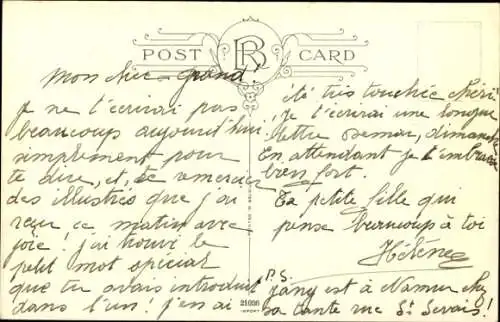 POST CARD
BR
Mon chéri grand!
Je ne t'écrirai pas
beaucoup aujourd'hui
simplement pour
te dire, et, te remercier
des illustrés que j'ai
reçu ce matin avec
joie! j'ai trouvé le
petit mot spécial
que tu avais introduit
dans l'un! j'en ai
été très touchée chéri
je t'écrirai une longue
lettre demain, dimanche
En attendant je t'embrasse
bien fort.
Ta petite fille qui
pense beaucoup à toi
Hélène
P.S.
Jany est à Namur chez
sa tante rue St Servais!
21036
IMPORT